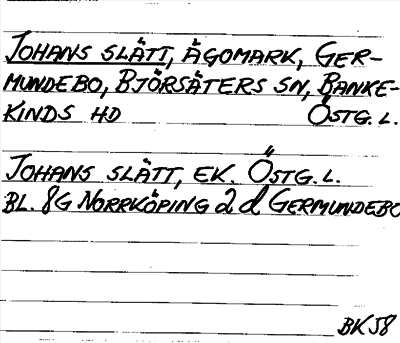 JOHANS SLÄTT, ÄGOMARK, GER-
MUNDEBO, BJÖRSÄTERS SN, BANKE-
KINDS HD ÖSTG. L.
JOHANS SLÄTT, EK. ÖSTG. L.
BL. 8G NORRKÖPING 2 d GERMUNDEBO
BK 58